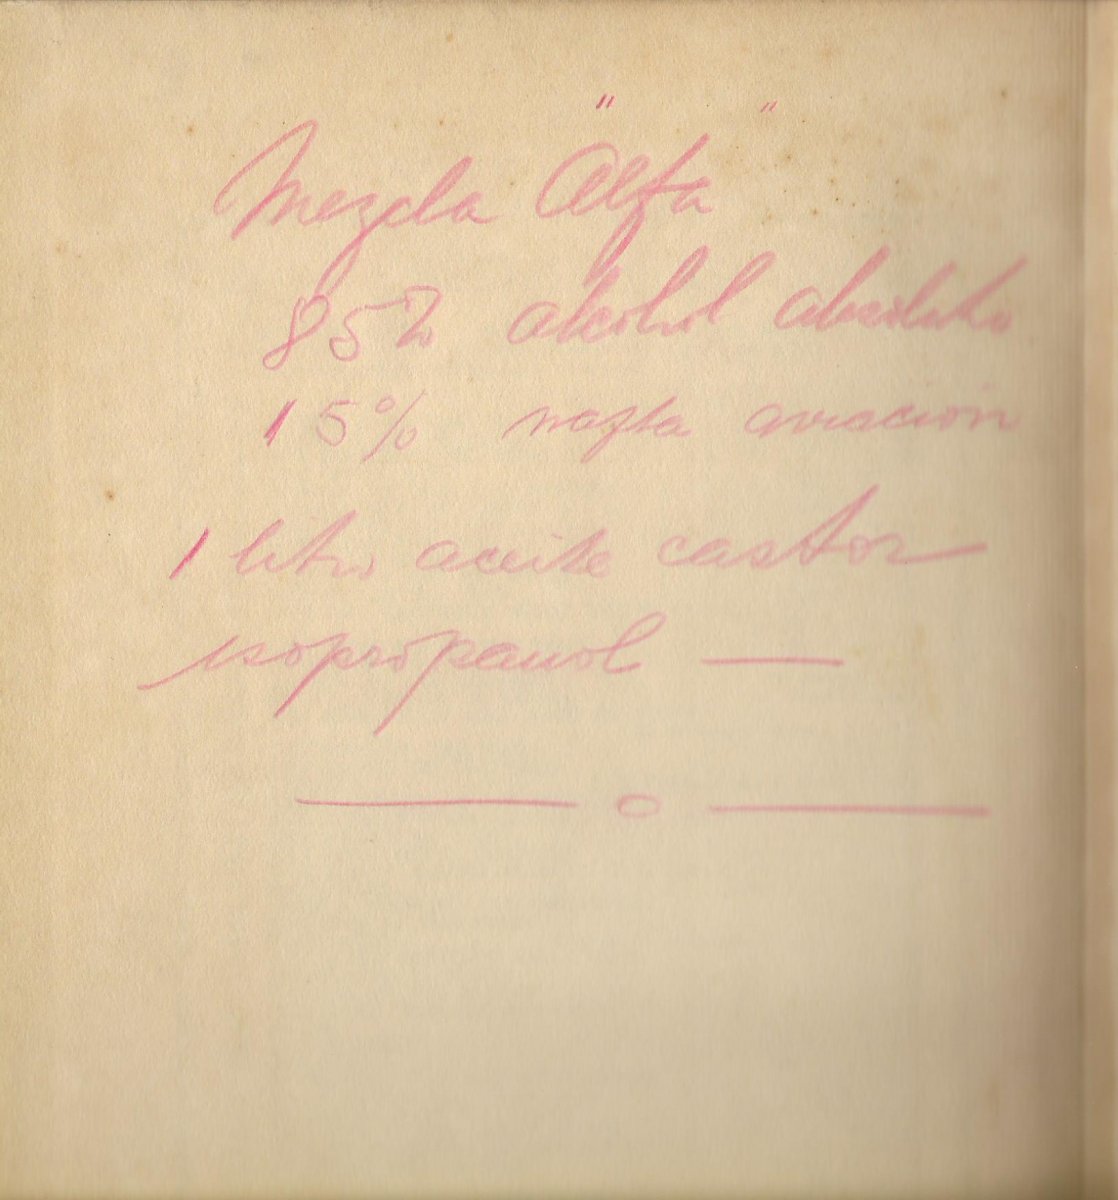 Mezcla "Alfa"
85% alcohol absoluto
15% nafta aviacion
1 litro aceite castor
isopropanol —
— o —